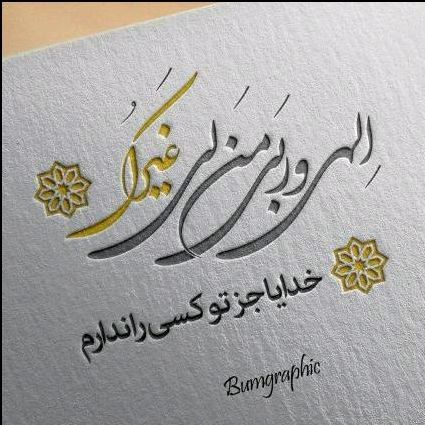 الهی و ربی من لی غیرک
خدایا جز تو کسی را ندارم
Bumgraphic